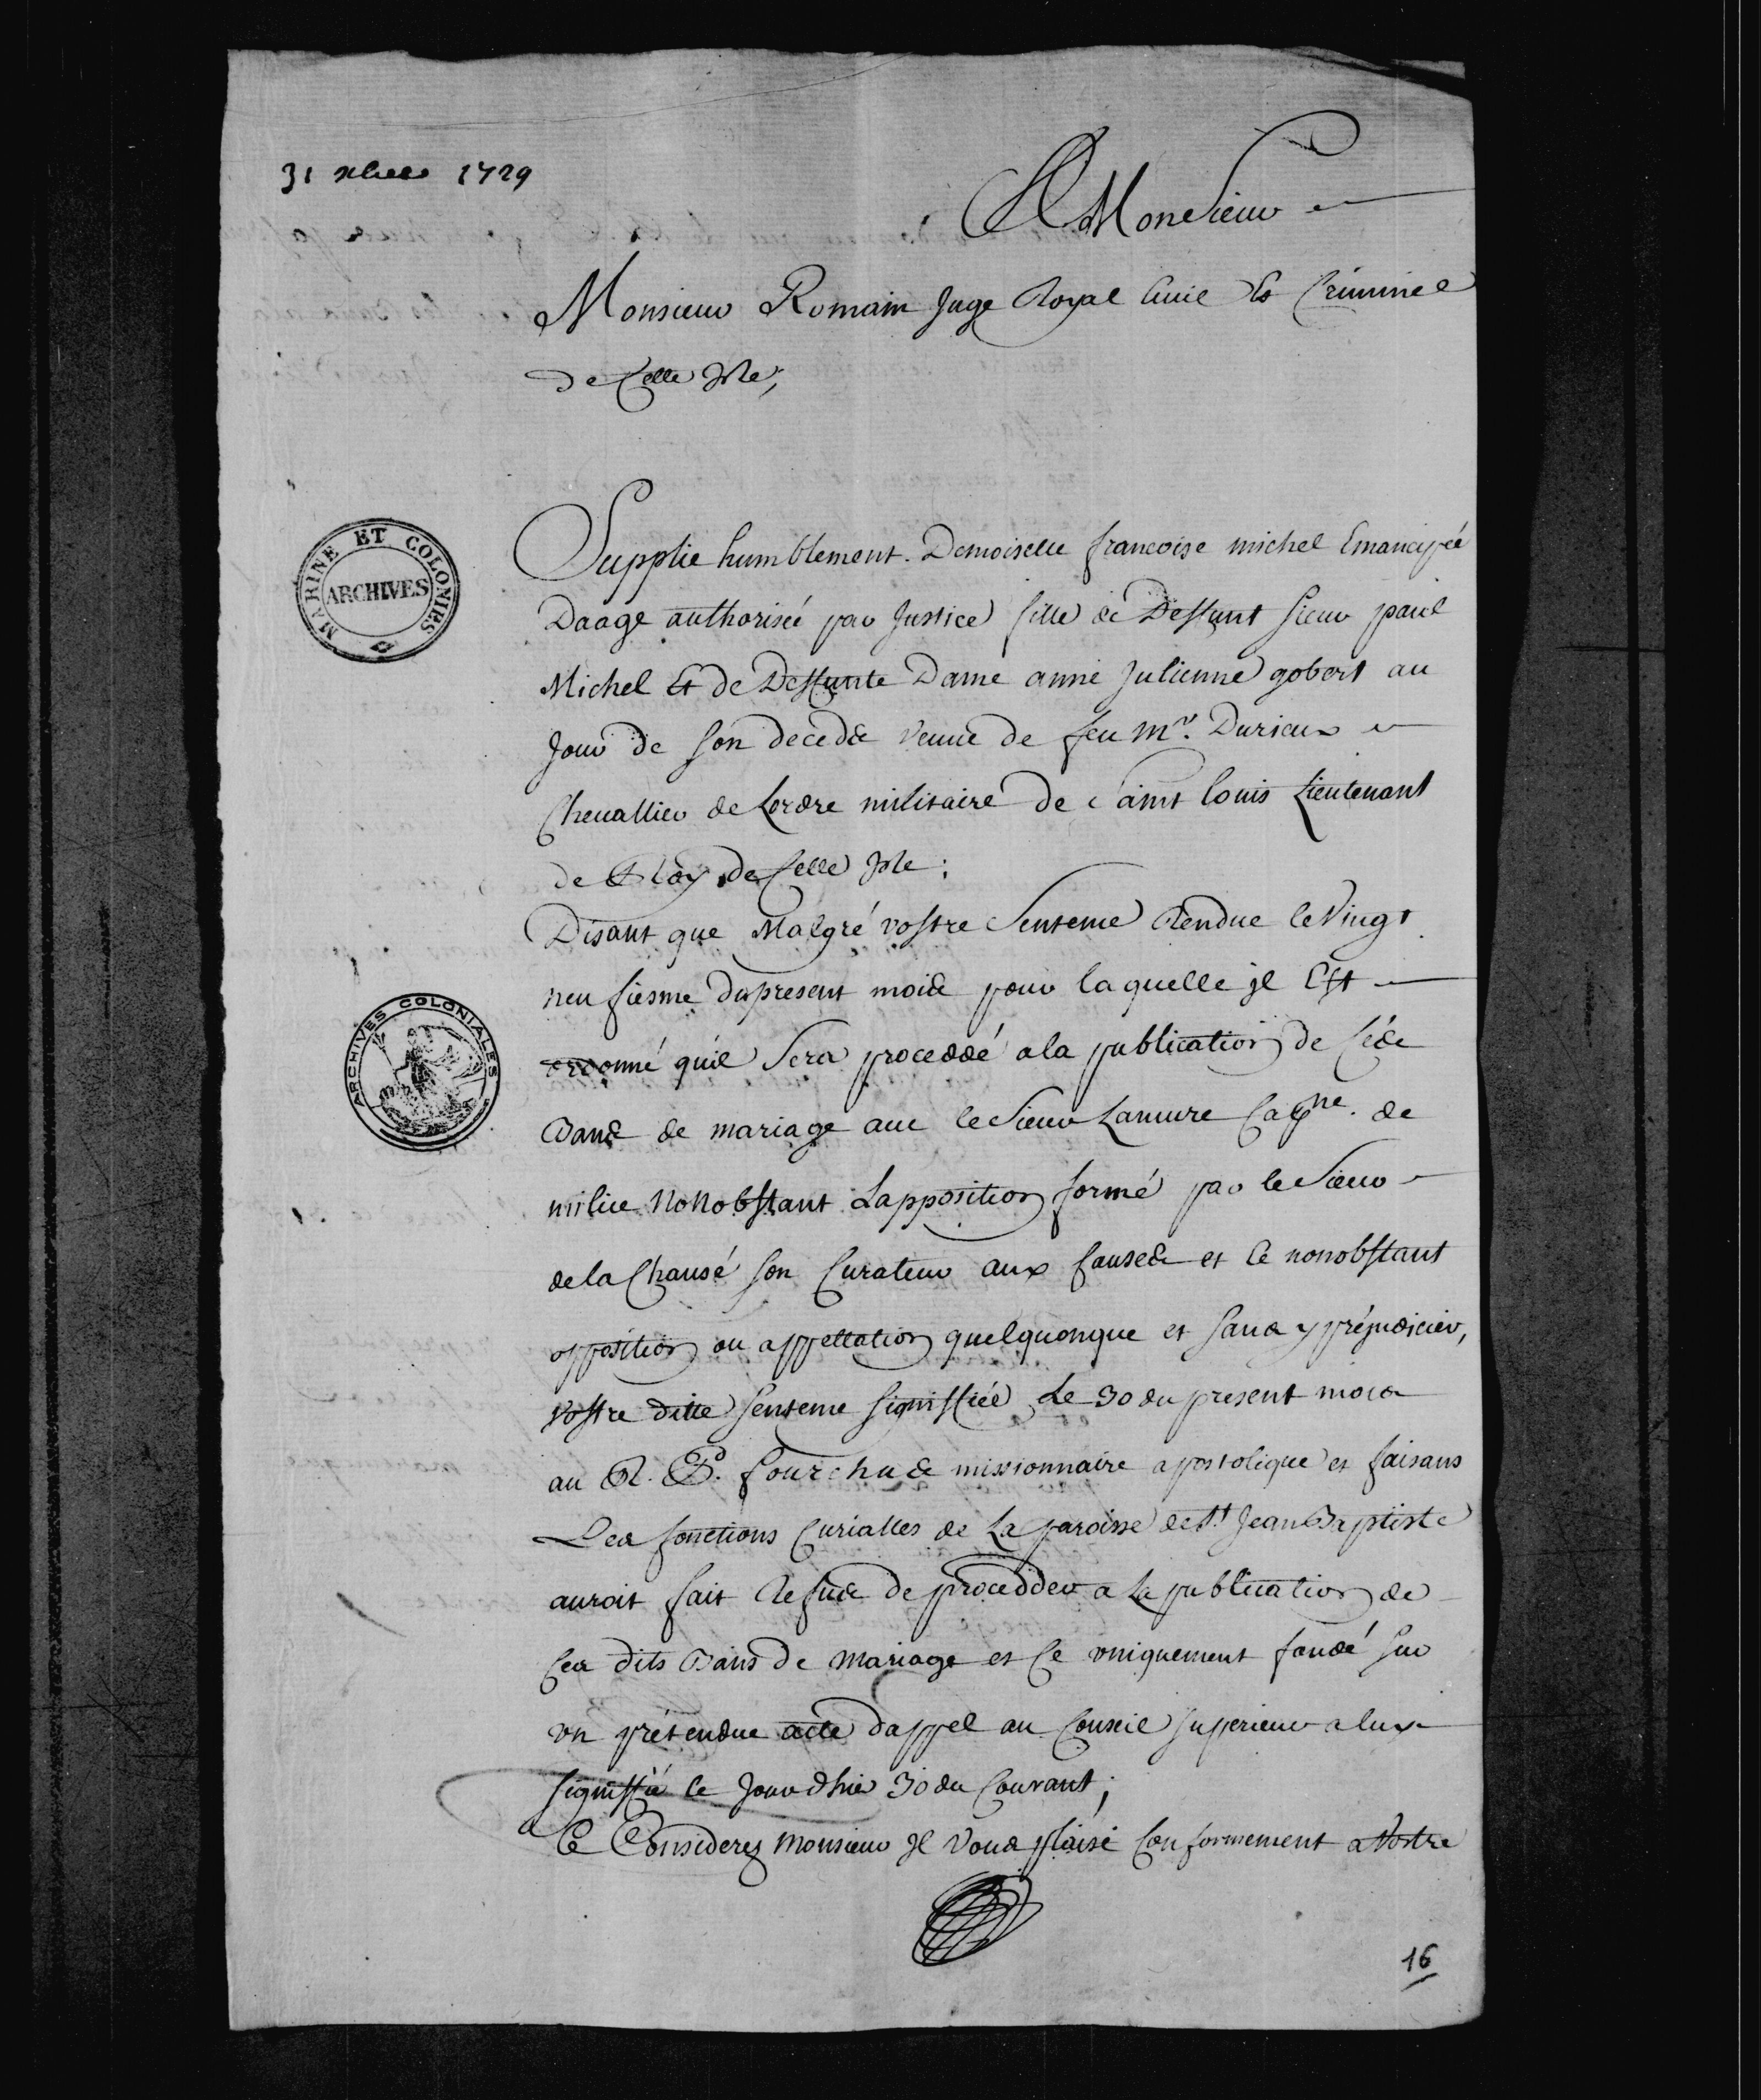 31 xbre 1729
A Monsieur
Monsieur Romain Juge Royal Civil Et Criminel
de Cette Isle;
Supplie humblement. Demoiselle francoise michel Emancipée
Daage authorisée par Justice fille de Deffunt sieur paul
Michel Et de Deffunte Dame anne Julienne gobert au
Jour de son decedes veuve de feu Mr. Durieux
Chevallier de Lordre militaire de saint louis Lieutenant
de Roy de Cette Isle;
Disant que Malgré vostre Sentence Rendue le Vingt
neufiesme du present mois pour laquelle jl Est
ordonné quil Sera proceddé a la publication de sés
Bans de mariage avec le Sieur Lamure Capne. de
milice Nonobstant Lapposition formé par le Sieur
de la Chausé son Curateur aux causes et Ce nonobstant
opposition ou appellation quelquonque et sans y préjudicier,
vostre ditte sentence signiffiée Le 30 du present mois
au R. Pd. fourchus missionnaire apostolique et faisans
Les fonctions Curialles de La paroisse de St Jean Baptiste
auroit fait Refus de procedder a La publication de
Ces dits Bans de mariage et Ce vniquement fondé sur
vn prétendue acte dappel au Conseil superieur a luy
signiffié le Jour dhier 30 du Courant;
Ce Considerez Monsieur Jl vous plaise Conformement a Vostre
16
MARINE ET COLONIES
ARCHIVES
ARCHIVES COLONIALES